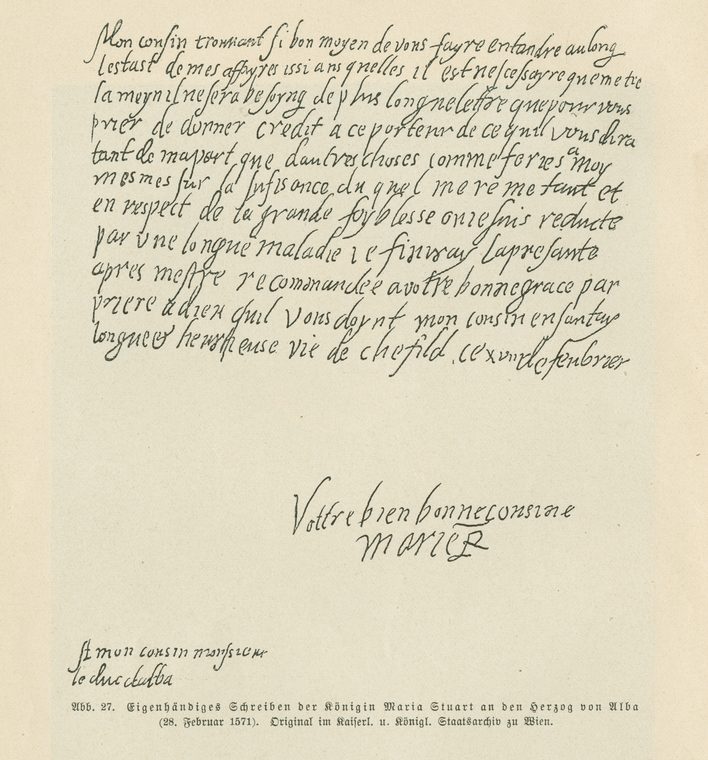 Mon cousin trouuant si bon moyen de vous fayre entandre au long
lestast de mes affayres issi ansquelles il est nescessayre que metre
la meyn il ne sera besoyng de plus longue lettre que pour vous
prier de donner credit a ce porteur de ce quil vous dira
tant de ma part que dautres choses comme feries a moy
mesmes sur la sufisance du quel me remetant et
en respect de la grande foyblesse ou ie suis reducte
par vne longue maladie ie finiray lapresante
apres mestre recommandee a votre bonne grace par
priere a dieu quil vous doynt mon cousin en santay
longue et heurheuse vie de chefild ce de feubrier
Vottre bien bonne cousine
Marie R
A mon cousin monsieur
le duc dalba
Abb. 27. Eigenhändiges Schreiben der Königin Maria Stuart an den Herzog von Alba
(28. Februar 1571). Original im Kaiserl. u. Königl. Staatsarchiv zu Wien.